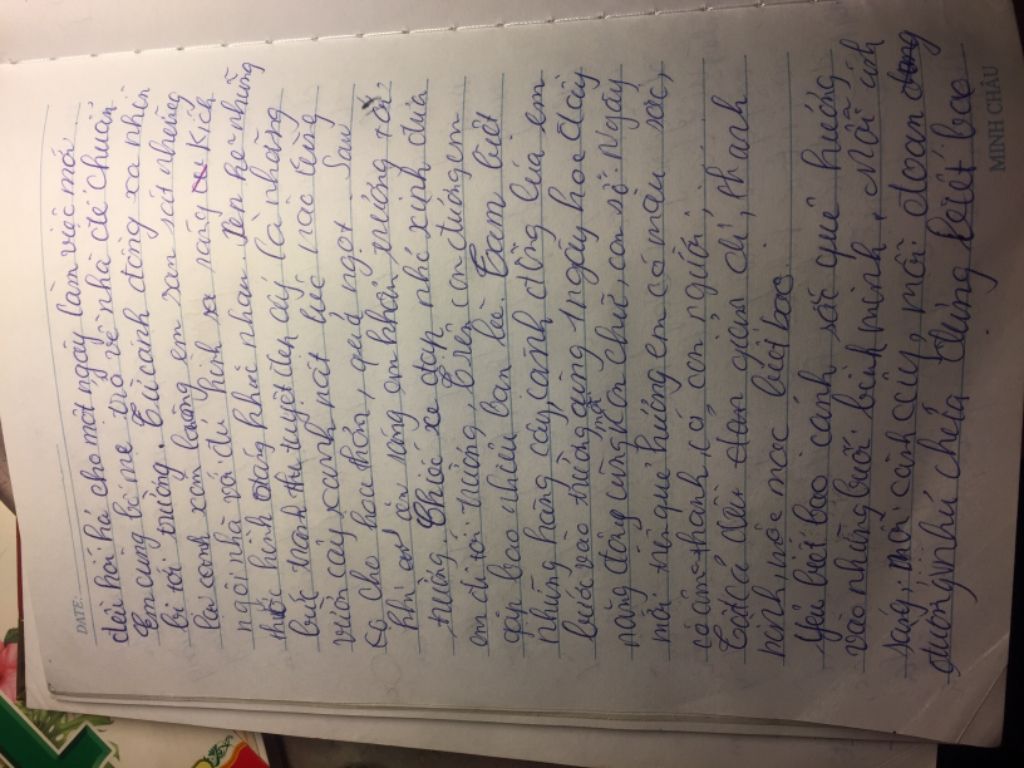 DATE:
dài hối hả cho một ngày làm việc mới
Em cùng bố mẹ trở về nhà để chuẩn
bị tới trường. Từ cánh đồng xa nhìn
lại cảnh xóm làng em san sát những
ngôi nhà với đủ hình xa rằng kích
thước hình dáng khác nhau xen kẽ những
bức tranh thu tuyệt đẹp ấy là những
vườn cây xanh mát lúc nào cũng
cọ cho hoa thơn, quả ngọt Sau
khi ăn sáng em nhanh chóng tới
trường Chiếc xe đạp nhỏ xinh đưa
em đi tới trường, trên con đường em
gặp bao nhiêu bạn bè. Tạm biệt
những hàng cây, cánh đồng lúa em
bước vào trường cùng 1 ngày học đầy
năng động cùng con chữ, con số. Ngày
mới trên quê hương em có màu sắc,
có âm thanh, có con người,
Tất cả đều đơn giản dị, thanh
bình, mộc mạc biết bao
Yêu biết bao cảnh sắc quê hương
vào những buổi bình minh. Mỗi ánh
sáng, mỗi cảnh cây, mỗi đoạn
đường nhỏ chứa đựng biết bao
MINH CHÂU